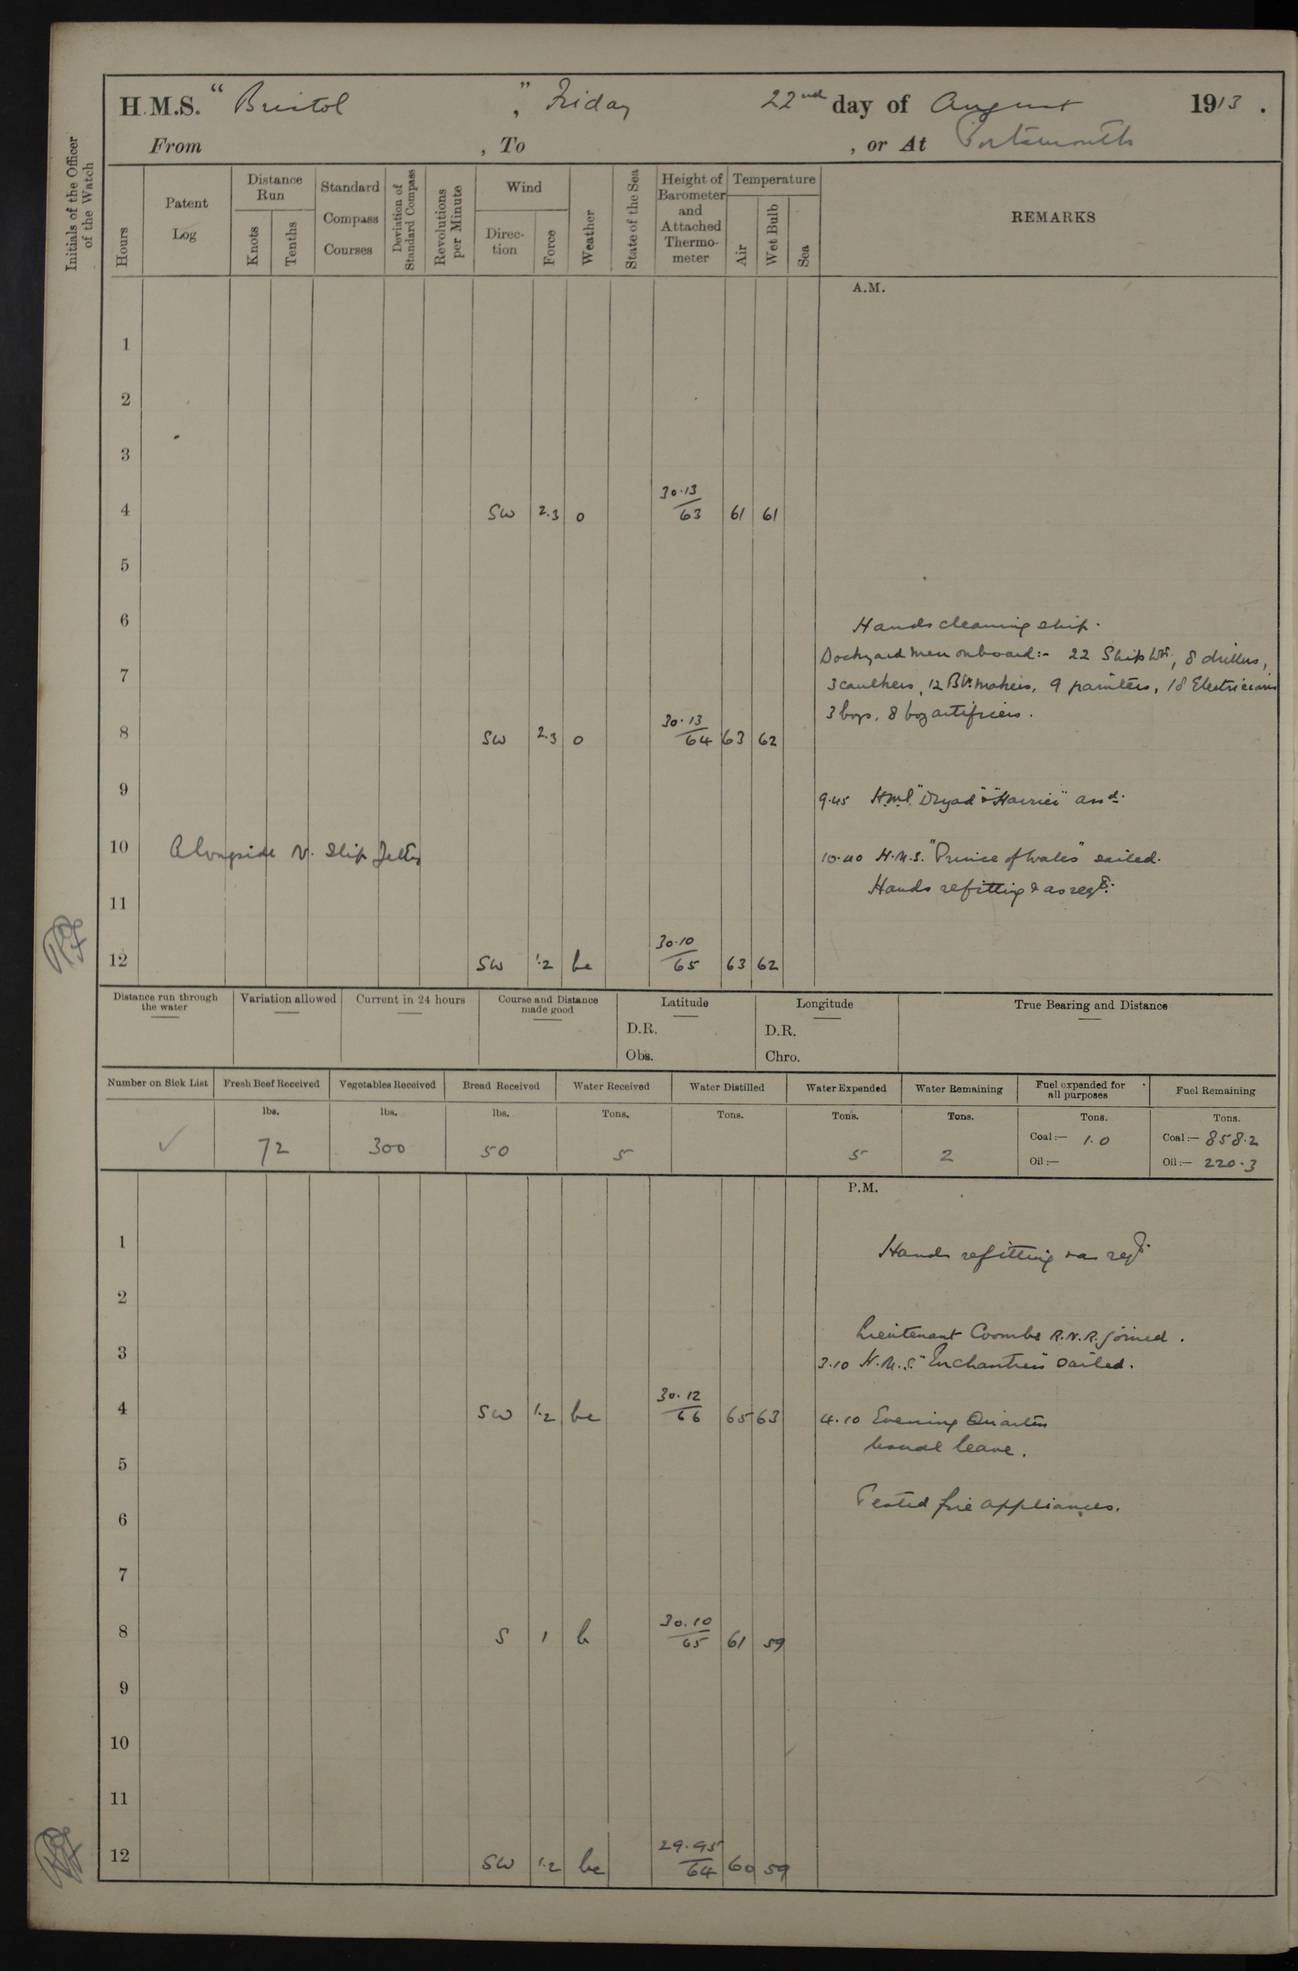 H.M.S. "Bristol", Friday 22nd day of August 1913.
From , To , or At Portsmouth
Initials of the Officer of the Watch
Hours
Patent Log
Distance Run
Knots
Tenths
Standard Compass Courses
Deviation of Standard Compass
Revolutions per Minute
Wind
Direction
Force
Weather
State of the Sea
Height of Barometer and Attached Thermometer
Temperature
Air
Wet Bulb
Sea
REMARKS
A.M.
1
2
3
4 SW 2.3 o 30.13/63 61 61
5
6 Hands cleaning ship.
Dockyard men onboard:- 22 Shipwts, 8 drillers,
7 3 caulkers, 12 Br.makers, 9 painters, 18 Electricians
3 boys, 8 boy artificers.
8 SW 2.3 o 30.13/64 63 62
9 9.45 H.M.S. "Dryad" & "Harrier" arrd.
10 Alongside N. Slip Jetty 10.40 H.M.S. "Prince of Wales" sailed.
Hands refitting & as reqd.
11
12 SW 1.2 bc 30.10/65 63 62
Distance run through the water
Variation allowed
Current in 24 hours
Course and Distance made good
Latitude
D.R.
Obs.
Longitude
D.R.
Chro.
True Bearing and Distance
Number on Sick List ✓
Fresh Beef Received lbs. 72
Vegetables Received lbs. 300
Bread Received lbs. 50
Water Received Tons. 5
Water Distilled Tons.
Water Expended Tons. 5
Water Remaining Tons. 2
Fuel expended for all purposes Tons.
Coal:— 1.0
Oil:—
Fuel Remaining Tons.
Coal:— 858.2
Oil:— 220.3
P.M.
1 Hands refitting & as reqd.
2
Lieutenant Coombs R.N.R. joined.
3 3.10 H.M.S. "Enchantress" sailed.
4 SW 1.2 bc 30.12/66 65 63 4.10 Evening Quarters
Usual leave.
5
Tested fire appliances.
6
7
8 S 1 b 30.10/65 61 59
9
10
11
12 SW 1.2 bc 29.95/64 60 59